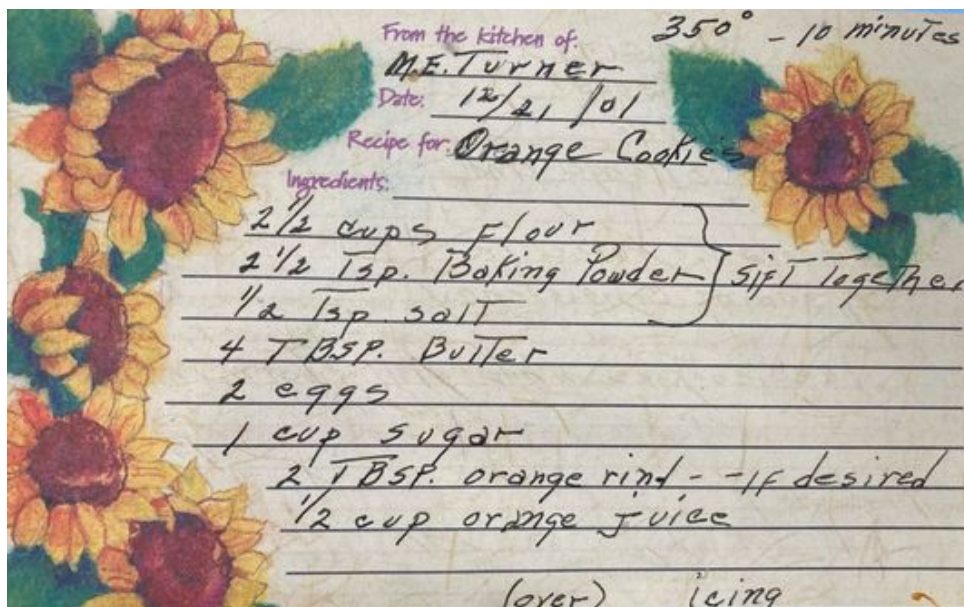 350° - 10 minutes
From the kitchen of:
M.E. Turner
Date: 12/21/01
Recipe for: Orange Cookies
Ingredients:
2 1/2 cups Flour
2 1/2 Tsp. Baking Powder } Sift Together
1/2 Tsp. Salt
4 TBSP. Butter
2 eggs
1 cup sugar
2 TBSP. orange rind - - If desired
1/2 cup orange juice
(over) icing